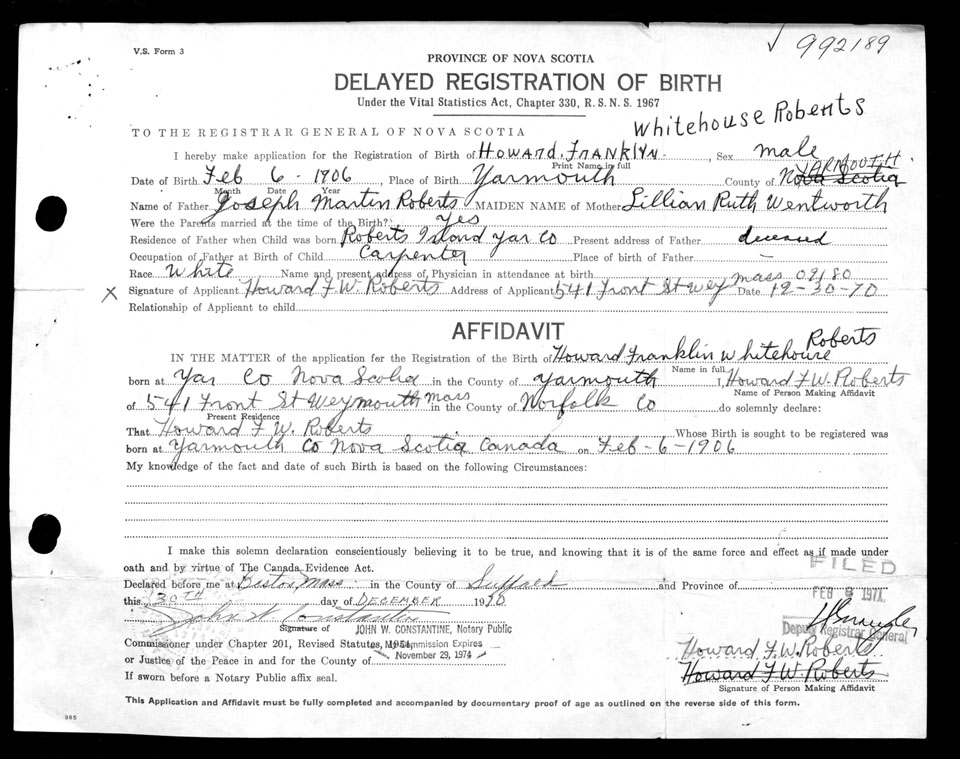 V.S. Form 3
√ 992189
PROVINCE OF NOVA SCOTIA
DELAYED REGISTRATION OF BIRTH
Under the Vital Statistics Act, Chapter 330, R. S. N. S. 1967
Whitehouse Roberts
TO THE REGISTRAR GENERAL OF NOVA SCOTIA
I hereby make application for the Registration of Birth of Howard. Franklyn , Sex male
Print Name in full
YARMOUTH.
Date of Birth Feb 6 - 1906 , Place of Birth Yarmouth County of Nova Scotia
Month Date Year
Name of Father Joseph Martin Roberts MAIDEN NAME of Mother Lillian Ruth Wentworth
Were the Parents married at the time of the Birth? Yes
Residence of Father when Child was born Roberts Island Yar Co Present address of Father deceased
Occupation of Father at Birth of Child Carpenter Place of birth of Father —
Race White Name and present address of Physician in attendance at birth
Mass 02180
X Signature of Applicant Howard F. W. Roberts Address of Applicant 541 Front St Wey Date 12-30-70
Relationship of Applicant to child
AFFIDAVIT
Roberts
IN THE MATTER of the application for the Registration of the Birth of Howard Franklin Whitehouse
Name in full
born at Yar Co Nova Scotia in the County of Yarmouth I, Howard F. W. Roberts
Name of Person Making Affidavit
of 541 Front St Weymouth Mass in the County of Norfolk Co do solemnly declare:
Present Residence
That Howard F W. Roberts Whose Birth is sought to be registered was
born at Yarmouth Co Nova Scotia Canada on Feb-6-1906
My knowledge of the fact and date of such Birth is based on the following Circumstances:
I make this solemn declaration conscientiously believing it to be true, and knowing that it is of the same force and effect as if made under
oath and by virtue of The Canada Evidence Act.
FILED
Declared before me at Boston, Mass in the County of Suffolk and Province of
FEB 1971
this 30TH day of DECEMBER 1970
John W Constantine
Signature of JOHN W. CONSTANTINE, Notary Public
Deputy Registrar General
Commissioner under Chapter 201, Revised Statutes, 1954, My Commission Expires
Howard F. W. Roberts
or Justice of the Peace in and for the County of November 29, 1974
Howard F. W. Roberts
If sworn before a Notary Public affix seal.
Signature of Person Making Affidavit
This Application and Affidavit must be fully completed and accompanied by documentary proof of age as outlined on the reverse side of this form.
385